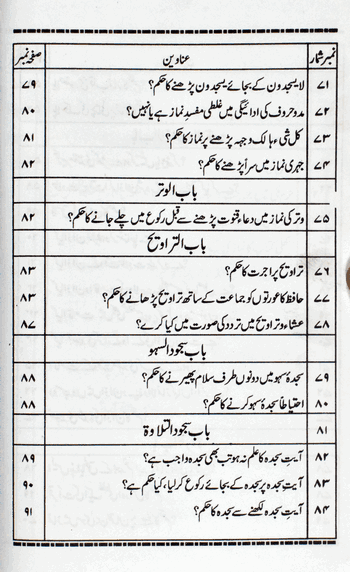 نمبر شمار عناوین صفحہ نمبر
۷۱ لا یسجدون کے بجائے یسجدون پڑھنے کا حکم؟ ۷۹
۷۲ مدو حروف کی ادائیگی میں غلطی مفسد نماز ہے یا نہیں؟ ۸۰
۷۳ کل شیء ہالک وجہہ پڑھنے پر نماز کا حکم؟ ۸۱
۷۴ جہری نماز میں سراً پڑھنے کا حکم؟ ۸۲
باب الوتر
۷۵ وتر کی نماز میں دعاء قنوت پڑھنے سے قبل رکوع میں چلے جانے کا حکم؟ ۸۲
باب التراویح
۷۶ تراویح پر اجرت کا حکم؟ ۸۳
۷۷ حافظ کا عورتوں کو جماعت کے ساتھ تراویح پڑھانے کا حکم؟ ۸۳
۷۸ عشاء و تراویح میں تردد کی صورت میں کیا کرے؟ ۸۷
باب سجود السہو
۷۹ سجدۂ سہو میں دونوں طرف سلام پھیرنے کا حکم؟ ۸۸
۸۰ احتیاطاً سجدۂ سہو کرنے کا حکم؟ ۸۸
۸۱ باب سجود التلاوۃ
۸۲ آیت سجدہ کا علم نہ ہو تب بھی سجدہ واجب ہے؟ ۸۹
۸۳ آیت سجدہ پر سجدہ کے بجائے رکوع کر لیا، کیا حکم ہے؟ ۹۰
۸۴ آیت سجدہ لکھنے سے سجدہ کا حکم؟ ۹۱